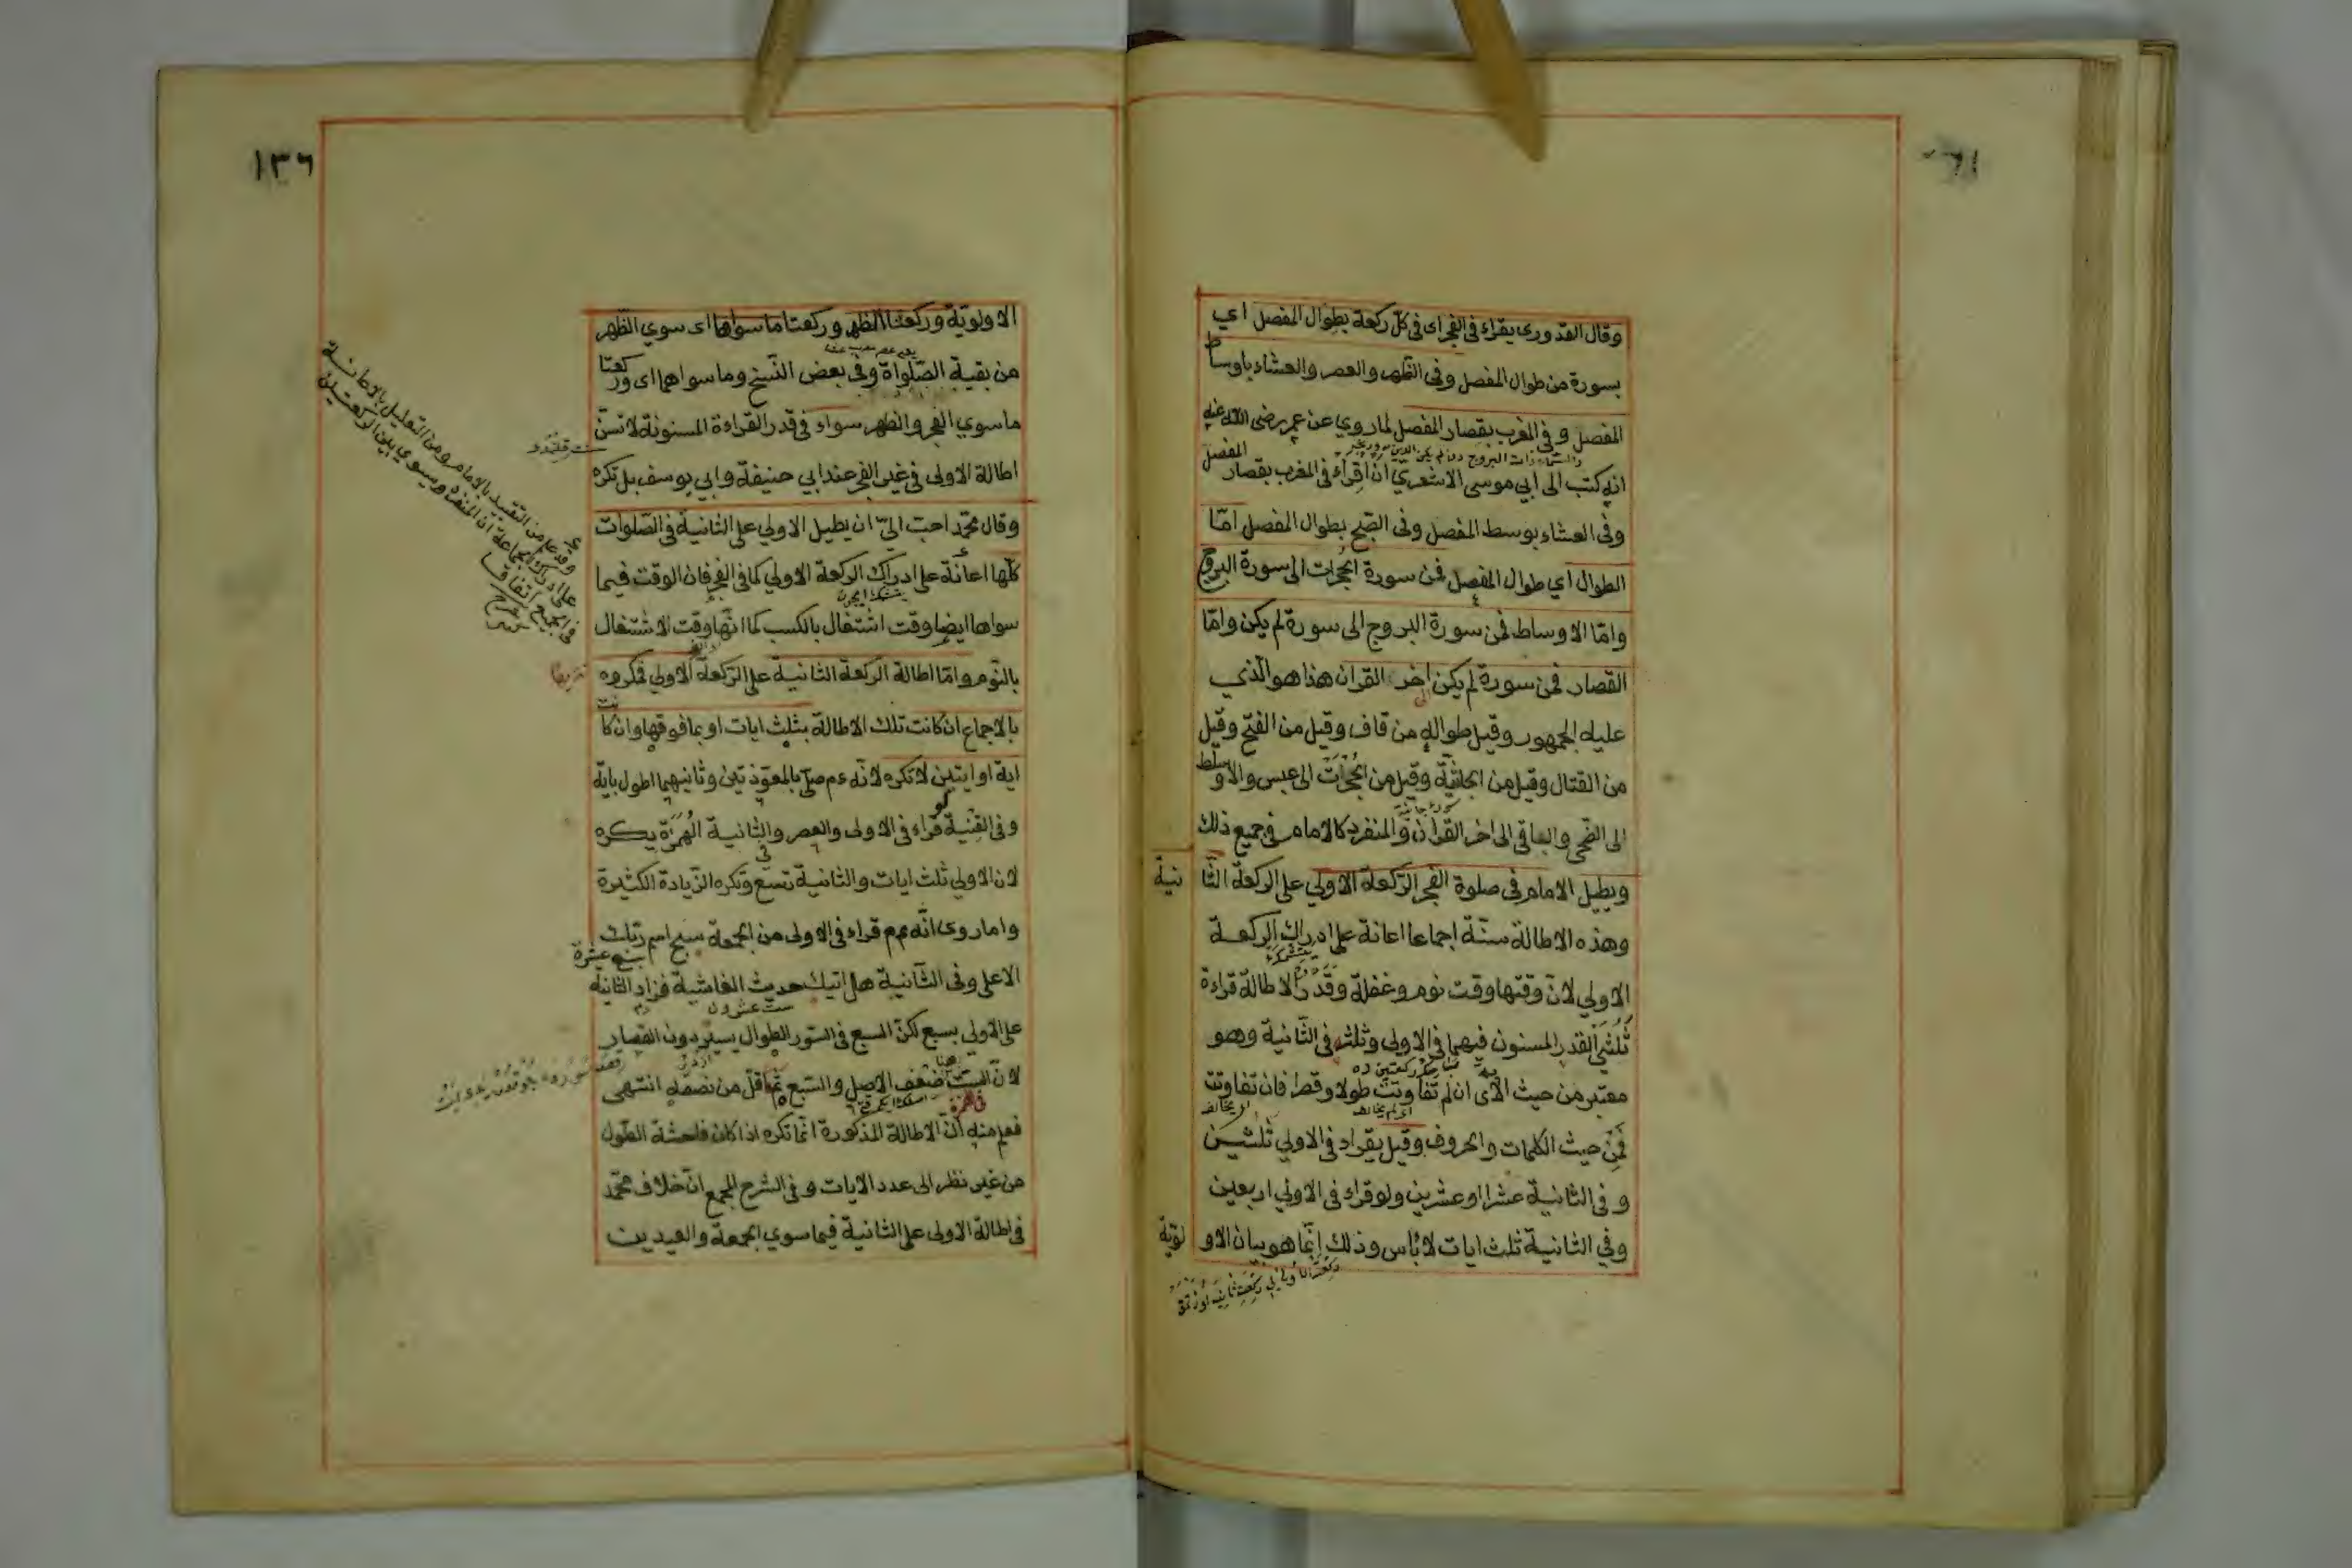 وقال القدورى يقراء فى الفجر اى فى كلّ ركعة بطوال المفصل اي
بسورة من طوال المفصل وفى الظهر والعصر والعشاء باوساط
المفصل وفى المغرب بقصار المفصل لماروي عن عمر رضى الله عنه
انه كتب الى ابي موسى الاشعريّ ان اقراء فى المغرب بقصار المفصل
وفى العشاء بوسط المفصل وفى الصّبح بطوال المفصل امّا
الطوال اي طوال المفصل فمن سورة الحجرات الى سورة البروج
وامّا الاوساط فمن سورة البروج الى سورة لم يكن وامّا
القصار فمن سورة لم يكن الى اخر القران هذا هو الّذي
عليه الجمهور وقيل طواله من قاف وقيل من الفتح وقيل
من القتال وقيل من الجاثية وقيل من الحجرات الى عبس والاوسط
الى الضّحى والباقى الى اخر القران والمنفرد كالامام فى جميع ذلك
ويطيل الامام فى صلوة الفجر الرّكعة الاولي على الركعة الثّا نية
وهذه الاطالة سنّة اجماعا اعانة على ادراك الركعة
الاولي لانّ وقتها وقت نوم وغفلة وقدّر الاطالة قراءة
ثُلُثَي القدر المسنون فيهما فى الاولى وثلثه فى الثّانية وهو
معتبر من حيث الاى ان لم تفاوتت طولا وقصرا فان تفاوتت
فمن حيث الكلمات والحروف وقيل يقراء فى الاولي ثلثين
وفى الثانية عشرا او عشرين ولو قراء فى الاولي اربعين
وفي الثانية ثلث ايات لا باس وذلك انّما هو بيان الاو لويّة
١٣٦
الاولويّة وركعتا الظهر وركعتا ما سواها اى سوي الظّهر
من بقية الصّلواة وفى بعض النّسخ وما سواهما اى وركعتا
ما سوي الفجر والظهر سواء فى قدر القراءة المسنونة لا تسنّ
اطالة الاولى فى غير الفجر عند ابي حنيفة وابي يوسف بل تكره
وقال محمّد احبّ اليّ ان يطيل الاولي على الثانية فى الصّلوات
كلّها اعانة على ادراك الركعة الاولي كما فى الفجر فان الوقت فيما
سواها ايضا وقت اشتغال بالكسب كما انّها وقت الاشتغال
بالنّوم وامّا اطالة الركعة الثانية على الرّكعة الاولي فمكروه
بالاجماع ان كانت تلك الاطالة بثلث ايات او بما فوقها وان كانت
اية او ايتين لا تكره لانّه عم صلّى بالمعوّذتين وثانيهما اطول باية
وفى القنية قراء فى الاولى والعصر وفى الثانية الهُمَزَة يكره
لان الاولي ثلث ايات والثانية تسع وتكره الزّيادة الكثيرة
واما روى انّه عم قراء فى الاولى من الجمعة سبح اسم ربّك
الاعلى وفى الثّانية هل اتيك حديث الغاشية فزاد الثانية
على الاولي بسبع لكنّ السبع فى السّور الطّوال يسير دون القصار
لانّ الستّ هنا ضعف الاصل والسّبع ثمّ اقلّ من نصفه انتهى
فعلم منه انّ الاطالة المذكورة انّما تكره اذا كان فاحشة الطّول
من غير نظر الى عدد الايات وفى الشرح المجمع انّ خلاف محمّد
فى اطالة الاولى على الثانية فيما سوي الجمعة والعيدين
وقد علم من التقييد بالامام ومن التعليل بالاعانة
على ادراك الجماعة ان المنفرد يسوي بين الركعتين
فى الجميع اتفاقا